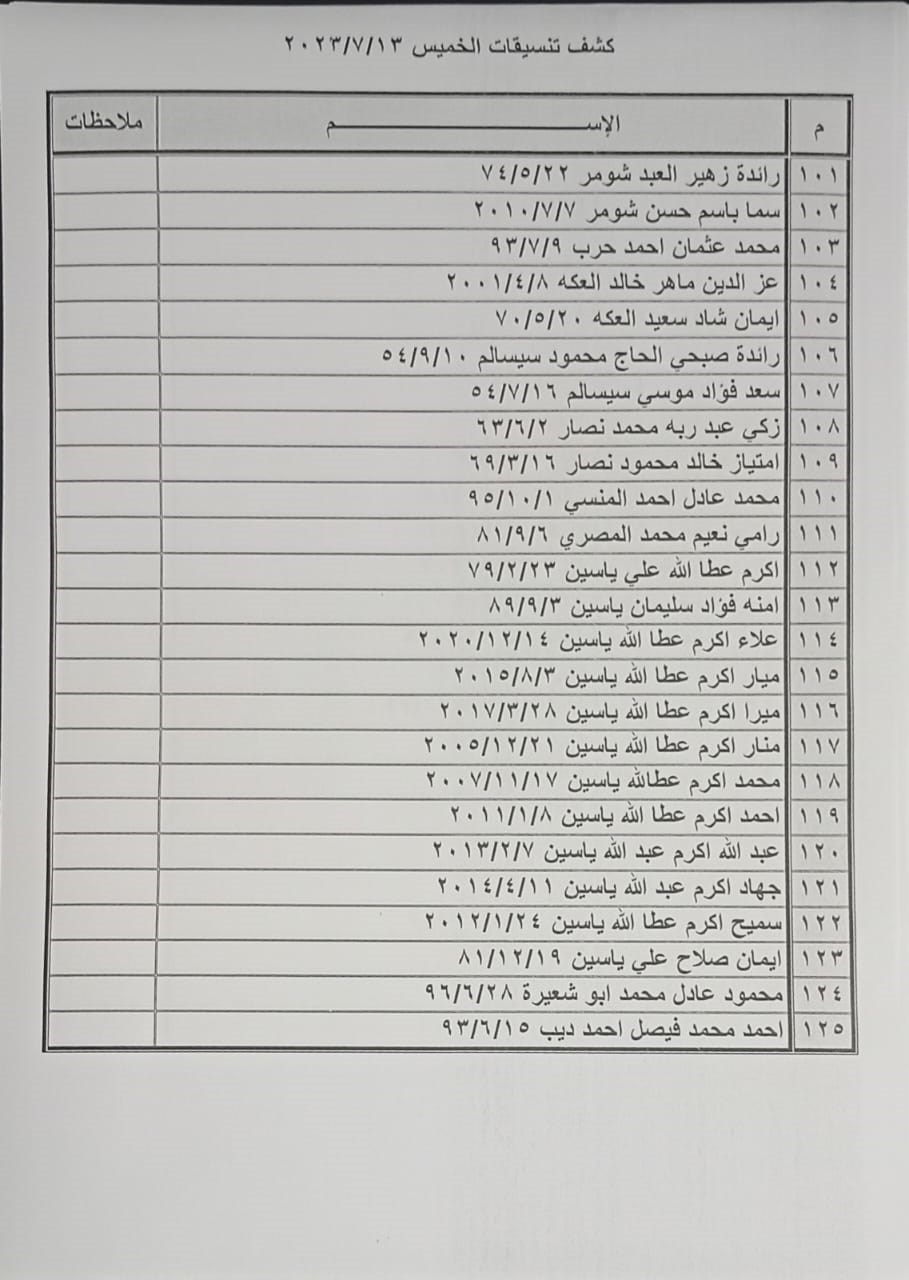 كشف تنسيقات الخميس ٢٠٢٣/٧/١٣
م الإســـــــــــم ملاحظات
١٠١ رائدة زهير العبد شومر ٧٤/٥/٢٢
١٠٢ سما باسم حسن شومر ٢٠١٠/٧/٧
١٠٣ محمد عثمان احمد حرب ٩٣/٧/٩
١٠٤ عز الدين ماهر خالد العكه ٢٠٠١/٤/٨
١٠٥ ايمان شاد سعيد العكه ٧٠/٥/٢٠
١٠٦ رائدة صبحي الحاج محمود سيسالم ٥٤/٩/١٠
١٠٧ سعد فؤاد موسي سيسالم ٥٤/٧/١٦
١٠٨ زكي عبد ربه محمد نصار ٦٣/٦/٢
١٠٩ امتياز خالد محمود نصار ٦٩/٣/١٦
١١٠ محمد عادل احمد المنسي ٩٥/١٠/١
١١١ رامي نعيم محمد المصري ٨١/٩/٦
١١٢ اكرم عطا الله علي ياسين ٧٩/٢/٢٣
١١٣ امنه فؤاد سليمان ياسين ٨٩/٩/٣
١١٤ علاء اكرم عطا الله ياسين ٢٠٢٠/١٢/١٤
١١٥ ميار اكرم عطا الله ياسين ٢٠١٥/٨/٣
١١٦ ميرا اكرم عطا الله ياسين ٢٠١٧/٣/٢٨
١١٧ منار اكرم عطا الله ياسين ٢٠٠٥/١٢/٢١
١١٨ محمد اكرم عطالله ياسين ٢٠٠٧/١١/١٧
١١٩ احمد اكرم عطا الله ياسين ٢٠١١/١/٨
١٢٠ عبد الله اكرم عبد الله ياسين ٢٠١٣/٢/٧
١٢١ جهاد اكرم عبد الله ياسين ٢٠١٤/٤/١١
١٢٢ سميح اكرم عطا الله ياسين ٢٠١٢/١/٢٤
١٢٣ ايمان صلاح علي ياسين ٨١/١٢/١٩
١٢٤ محمود عادل محمد ابو شعيرة ٩٦/٦/٢٨
١٢٥ احمد محمد فيصل احمد ديب ٩٣/٦/١٥